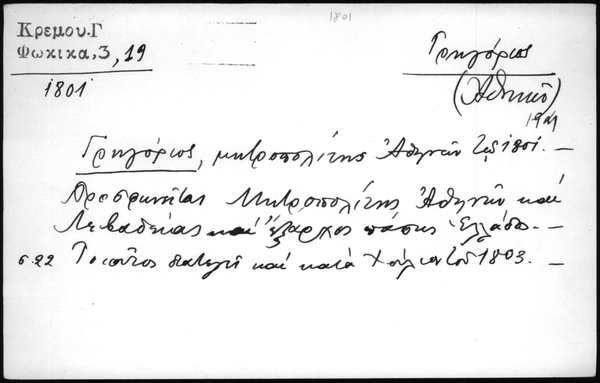 1801
Κρεμου.Γ
Φωκικα,3, 19
1801
Γρηγόριος
(Ἀθηνῶν)
Γρηγόριος, μητροπολίτης Ἀθηνῶν τῷ 1801. —
Προσφωνεῖται Μητροπολίτης Ἀθηνῶν καὶ
Λεβαδείας καὶ ἔξαρχος πάσης Ἑλλάδος. —
σ.22 Τοιοῦτος διατελεῖ καὶ κατὰ τοῦ 1803. —